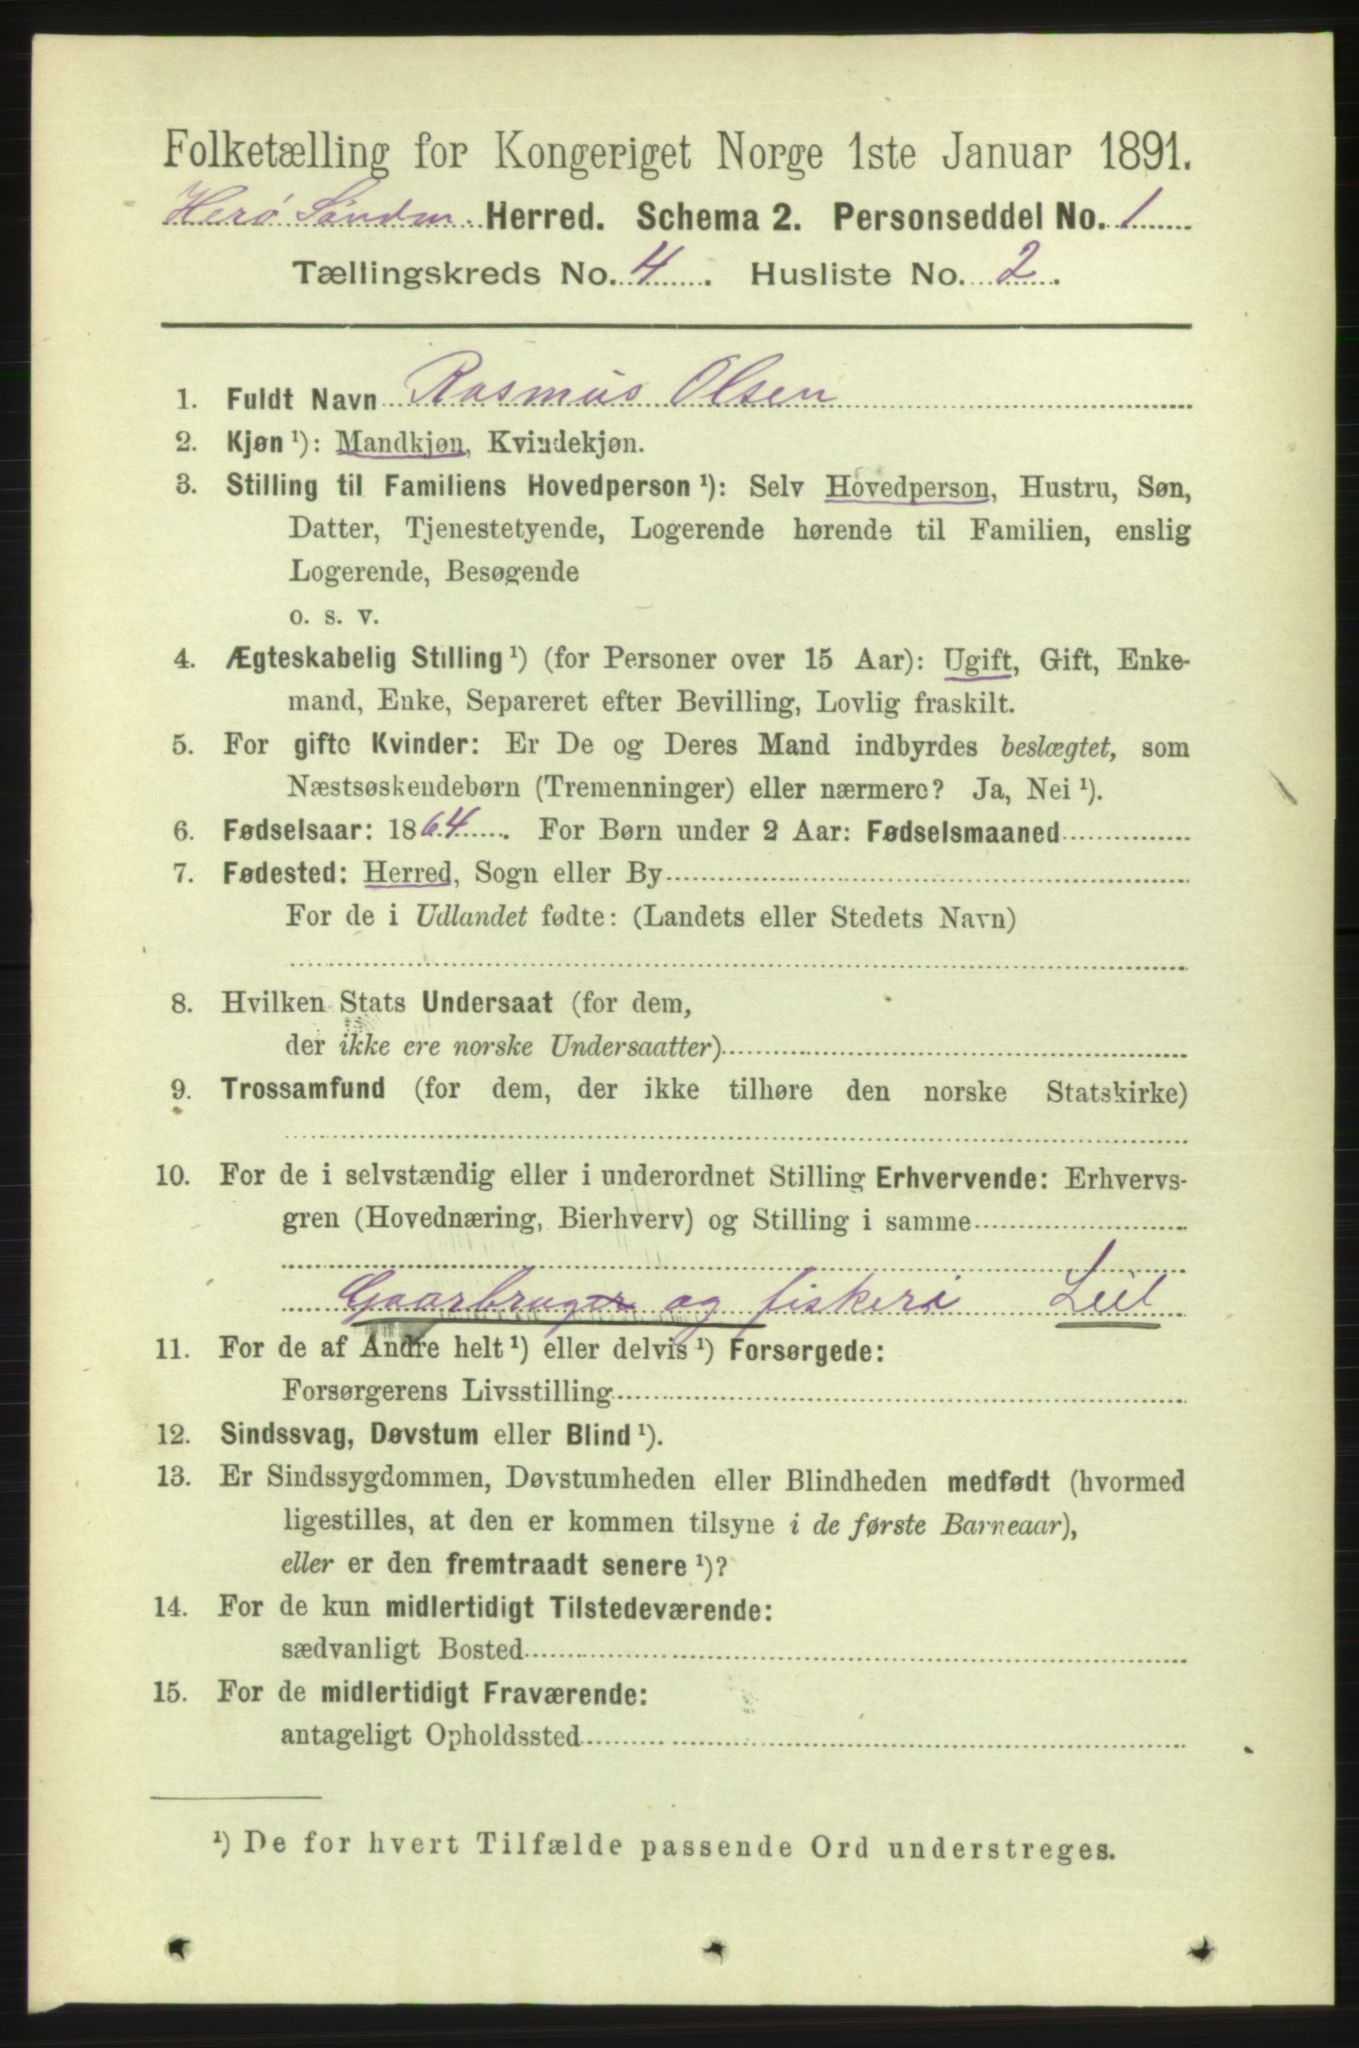 Folketælling for Kongeriget Norge 1ste Januar 1891.
Herø Søndm. Herred. Schema 2. Personseddel No. 1
Tællingskreds No. 4. Husliste No. 2.
1. Fuldt Navn Rasmus Olsen
2. Kjøn ¹): Mandkjøn, Kvindekjøn.
3. Stilling til Familiens Hovedperson ¹): Selv Hovedperson, Hustru, Søn,
Datter, Tjenestetyende, Logerende hørende til Familien, enslig
Logerende, Besøgende
o. s. v.
4. Ægteskabelig Stilling ¹) (for Personer over 15 Aar): Ugift, Gift, Enke-
mand, Enke, Separeret efter Bevilling, Lovlig fraskilt.
5. For gifte Kvinder: Er De og Deres Mand indbyrdes beslægtet, som
Næstsøskendebørn (Tremenninger) eller nærmere? Ja, Nei ¹).
6. Fødselsaar: 1864. For Børn under 2 Aar: Fødselsmaaned
7. Fødested: Herred, Sogn eller By
For de i Udlandet fødte: (Landets eller Stedets Navn)
8. Hvilken Stats Undersaat (for dem,
der ikke ere norske Undersaatter)
9. Trossamfund (for dem, der ikke tilhøre den norske Statskirke)
10. For de i selvstændig eller i underordnet Stilling Erhvervende: Erhvervs-
gren (Hovednæring, Bierhverv) og Stilling i samme
Gaarbruger og fiskeri Leil
11. For de af Andre helt ¹) eller delvis ¹) Forsørgede:
Forsørgerens Livsstilling
12. Sindssvag, Døvstum eller Blind ¹).
13. Er Sindssygdommen, Døvstumheden eller Blindheden medfødt (hvormed
ligestilles, at den er kommen tilsyne i de første Barneaar),
eller er den fremtraadt senere ¹)?
14. For de kun midlertidigt Tilstedeværende:
sædvanligt Bosted
15. For de midlertidigt Fraværende:
antageligt Opholdssted
¹) De for hvert Tilfælde passende Ord understreges.